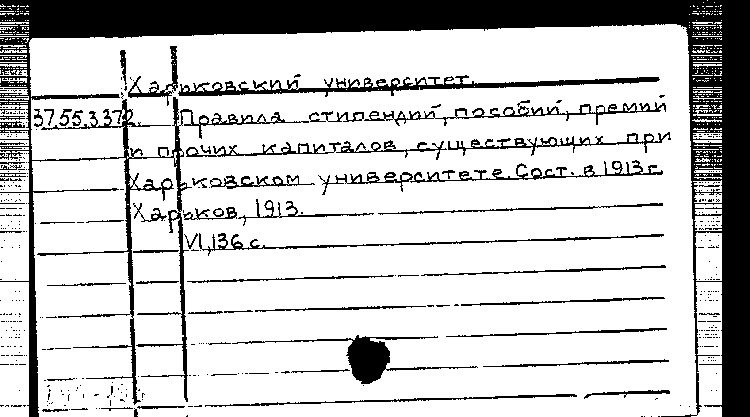 Харьковский университет.
37.55.3372. Правила стипендий, пособий, премий
и прочих капиталов, существующих при
Харьковском университете. Сост. в 1913 г.
Харьков, 1913.
VI, 136 с.